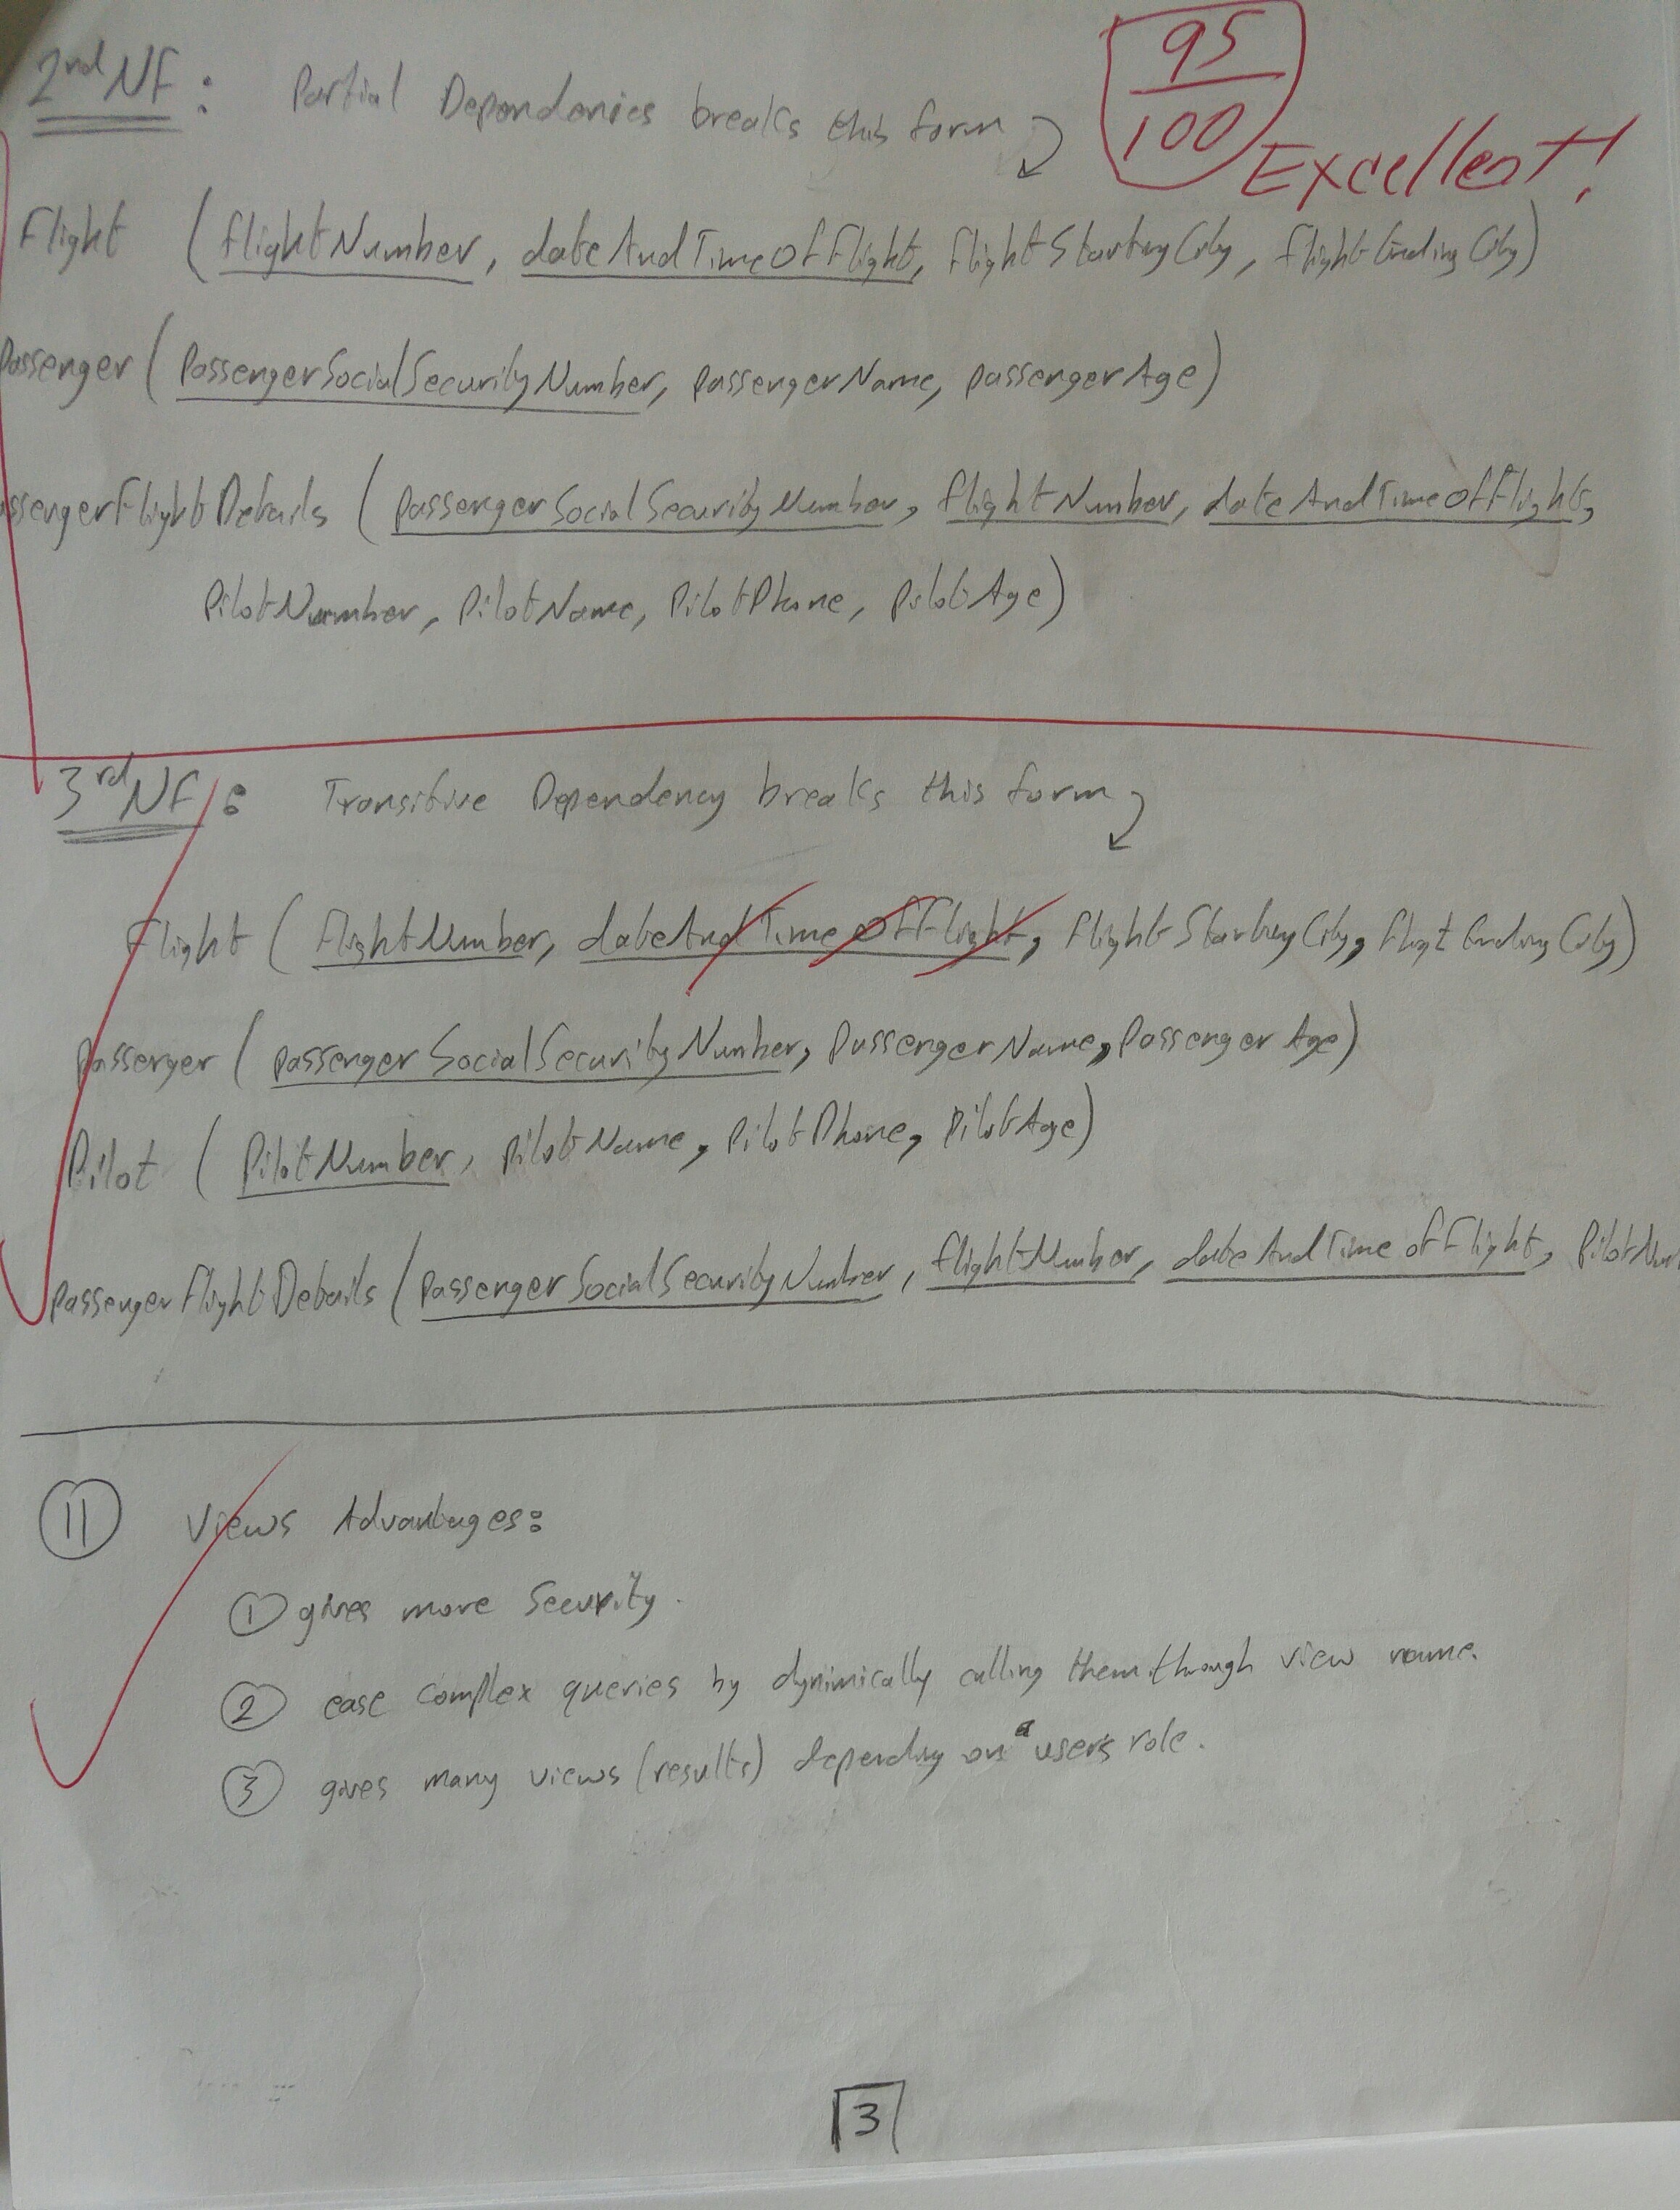 2nd NF : Partial Dependenies breaks this form
95
100
Excellent!
Flight (flightNumber, dateAndTimeOfFlight, flightStartingCity, flightEndingCity)
Passenger (PassengerSocialSecurityNumber, passengerName, passengerAge)
ssengerFlightDetails (passengerSocialSecurityNumber, flightNumber, dateAndTimeOfFlight,
PilotNumber, PilotName, PilotPhone, PilotAge)
3rd NF : Transitive Dependency breaks this form
Flight (flightNumber, dateAndTimeOfFlight, flightStartingCity, flightEndingCity)
Passenger (passengerSocialSecurityNumber, passengerName, PassengerAge)
Pilot (PilotNumber, PilotName, PilotPhone, PilotAge)
PassengerFlightDetails (passengerSocialSecurityNumber, flightNumber, dateAndTimeOfFlight, PilotNum
11 Views Advantages:
1 gives more Security.
2 ease complex queries by dynimically calling them through view name.
3 gives many views (results) depending on a user's role.
3